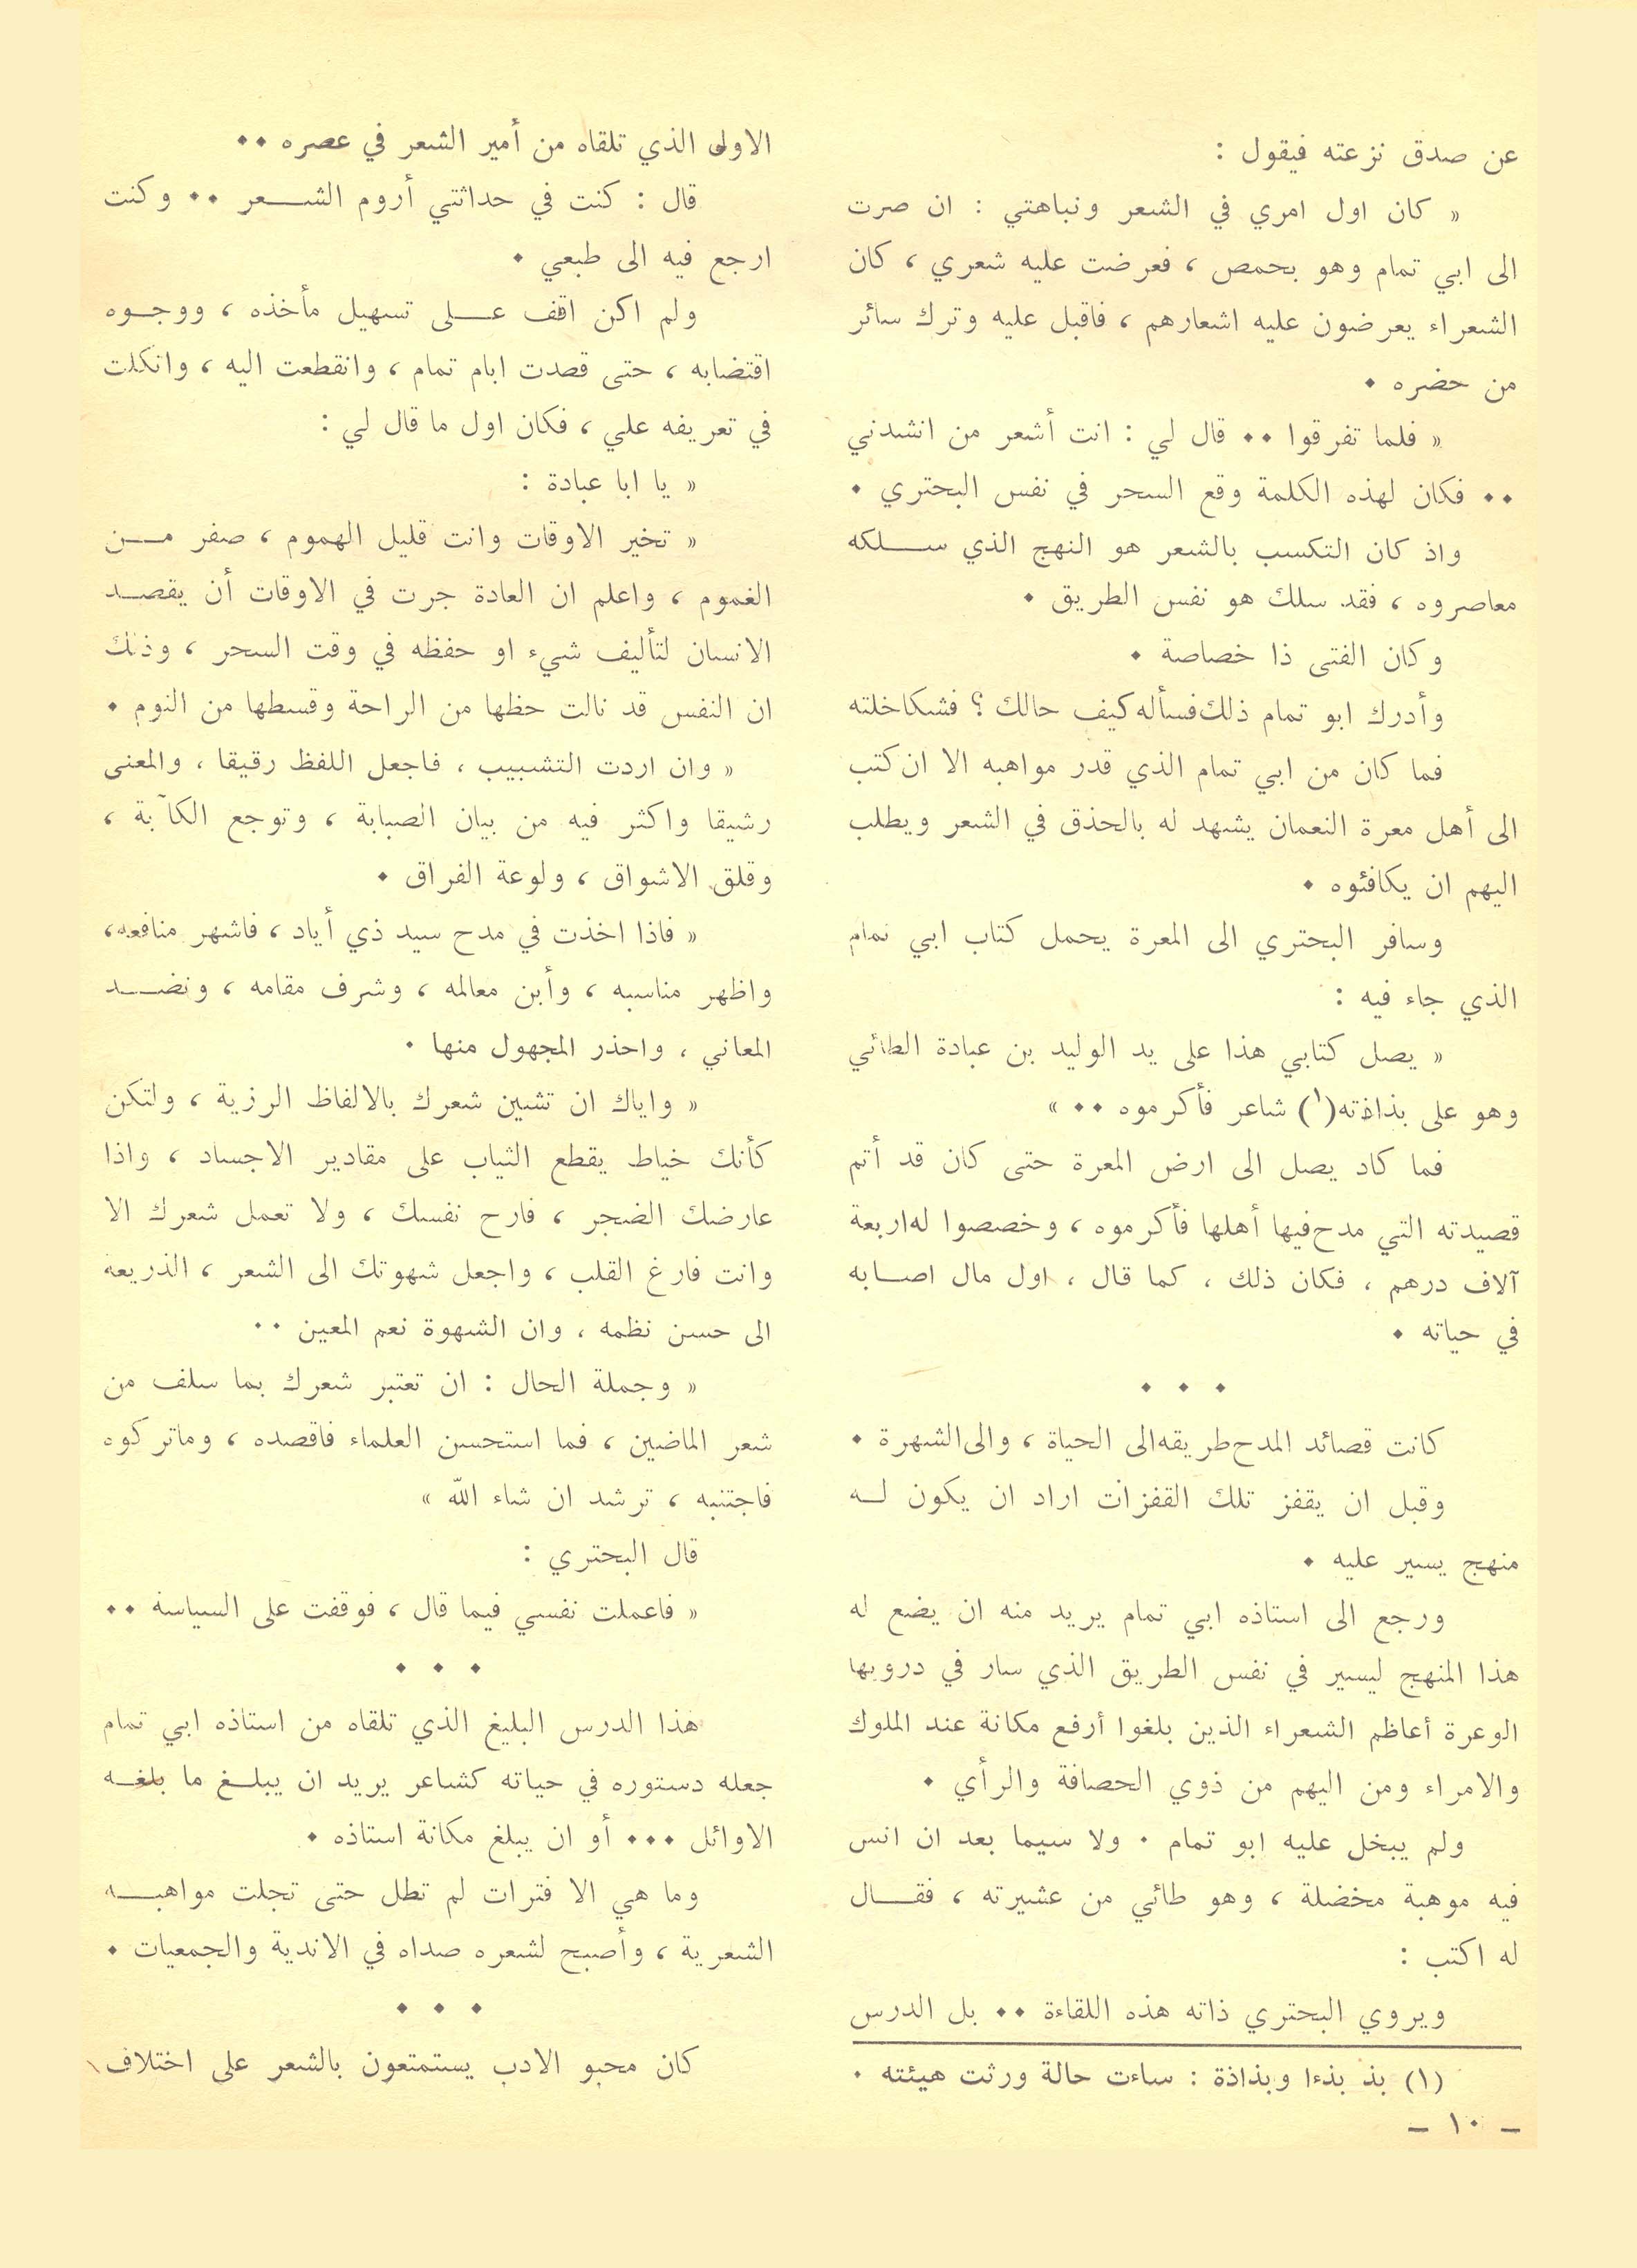 عن صدق نزعته فيقول :
« كان اول امري في الشعر ونباهتي : ان صرت
الى ابي تمام وهو بحمص ، فعرضت عليه شعري ، كان
الشعراء يعرضون عليه اشعارهم ، فاقبل عليه وترك سائر
من حضره .
« فلما تفرقوا .. قال لي : انت أشعر من انشدني
.. فكان لهذه الكلمة وقع السحر في نفس البحتري .
واذ كان التكسب بالشعر هو النهج الذي سلكه
معاصروه ، فقد سلك هو نفس الطريق .
وكان الفتى ذا خصاصة .
وأدرك ابو تمام ذلك فسأله كيف حالك ؟ فشكا خلته
فما كان من ابي تمام الذي قدر مواهبه الا ان كتب
الى أهل معرة النعمان يشهد له بالحذق في الشعر ويطلب
اليهم ان يكافئوه .
وسافر البحتري الى المعرة يحمل كتاب ابي تمام
الذي جاء فيه :
« يصل كتابي هذا على يد الوليد بن عبادة الطائي
وهو على بذاذته(١) شاعر فأكرموه .. »
فما كاد يصل الى ارض المعرة حتى كان قد أتم
قصيدته التي مدح فيها أهلها فأكرموه ، وخصصوا له اربعة
آلاف درهم ، فكان ذلك ، كما قال ، اول مال اصابه
في حياته .
. . .
كانت قصائد المدح طريقه الى الحياة ، والى الشهرة .
وقبل ان يقفز تلك القفزات اراد ان يكون له
منهج يسير عليه .
ورجع الى استاذه ابي تمام يريد منه ان يضع له
هذا المنهج ليسير في نفس الطريق الذي سار في دروبها
الوعرة أعاظم الشعراء الذين بلغوا أرفع مكانة عند الملوك
والامراء ومن اليهم من ذوي الحصافة والرأي .
ولم يبخل عليه ابو تمام . ولا سيما بعد ان انس
فيه موهبة مخضلة ، وهو طائي من عشيرته ، فقال
له اكتب :
ويروي البحتري ذاته هذه اللقاءة .. بل الدرس
(١) بذ بذءا وبذاذة : ساءت حالة ورثت هيئته .
– ١٠ –
الاولى الذي تلقاه من أمير الشعر في عصره ..
قال : كنت في حداثتي أروم الشعر .. وكنت
ارجع فيه الى طبعي .
ولم اكن اقف على تسهيل مأخذه ، ووجوه
اقتضابه ، حتى قصدت ابام تمام ، وانقطعت اليه ، واتكلت
في تعريفه علي ، فكان اول ما قال لي :
« يا ابا عبادة :
« تخير الاوقات وانت قليل الهموم ، صفر من
الغموم ، واعلم ان العادة جرت في الاوقات أن يقصد
الانسان لتأليف شيء او حفظه في وقت السحر ، وذلك
ان النفس قد نالت حظها من الراحة وقسطها من النوم .
« وان اردت التشبيب ، فاجعل اللفظ رقيقا ، والمعنى
رشيقا واكثر فيه من بيان الصبابة ، وتوجع الكآبة ،
وقلق الاشواق ، ولوعة الفراق .
« فاذا اخذت في مدح سيد ذي أياد ، فاشهر منافعه،
واظهر مناسبه ، وأبن معالمه ، وشرف مقامه ، ونضد
المعاني ، واحذر المجهول منها .
« واياك ان تشين شعرك بالالفاظ الرزية ، ولتكن
كأنك خياط يقطع الثياب على مقادير الاجساد ، واذا
عارضك الضجر ، فارح نفسك ، ولا تعمل شعرك الا
وانت فارغ القلب ، واجعل شهوتك الى الشعر ، الذريعة
الى حسن نظمه ، وان الشهوة نعم المعين ..
« وجملة الحال : ان تعتبر شعرك بما سلف من
شعر الماضين ، فما استحسن العلماء فاقصده ، وماتركوه
فاجتنبه ، ترشد ان شاء الله »
قال البحتري :
« فاعملت نفسي فيما قال ، فوقفت على السياسة ..
. . .
هذا الدرس البليغ الذي تلقاه من استاذه ابي تمام
جعله دستوره في حياته كشاعر يريد ان يبلغ ما بلغه
الاوائل ... أو ان يبلغ مكانة استاذه .
وما هي الا فترات لم تطل حتى تجلت مواهبه
الشعرية ، وأصبح لشعره صداه في الاندية والجمعيات .
. . .
كان محبو الادب يستمتعون بالشعر على اختلاف